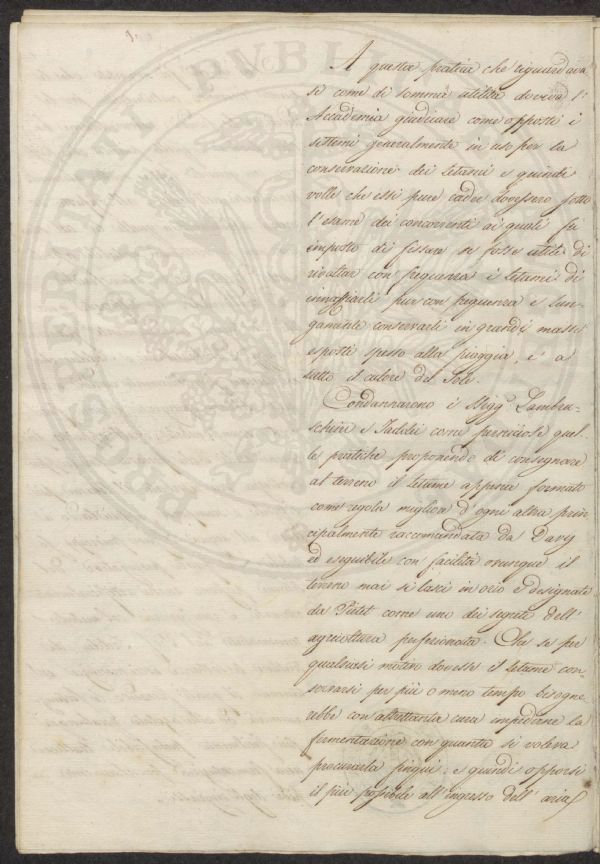 A questa pratica che riguardava
si come di somma utilità doveva l'
Accademia giudicare come opposti i
sistemi generalmente in uso per la
conservazione dei letami e quindi
volle che essi pure cader dovessero sotto
l'esame dei concorrenti ai quali fu
imposto di fissare se fosse utile di
rivoltar con frequenza i letami di
innaffiarli pur con frequenza e lun-
gamente conservarli in grandi masse
esposti spesso alla pioggia, e a
tutto il calore del Sole.
Condannarono i Sigg.i Lambru-
schini e Taddei come perniciose quel-
le pratiche proponendo di consegnare
al terreno il letame appena formato
come regola miglior d'ogni altra prin
cipalmente raccomandata da Davy
ed eseguibile con facilità ovunque il
terreno mai si lasci in ozio e designata
da Pictet come uno dei segreti dell'
agricoltura perfezionata. Che se per
qualsiasi motivo dovesse il letame con-
servarsi per più o meno tempo bisogne
rebbe con altrettanta cura impedirne la
fermentazione con quanta si voleva
procurarla finquì, e quindi opporsi
il più possibile all'ingresso dell'aria
PROSPERITATI PVBLI